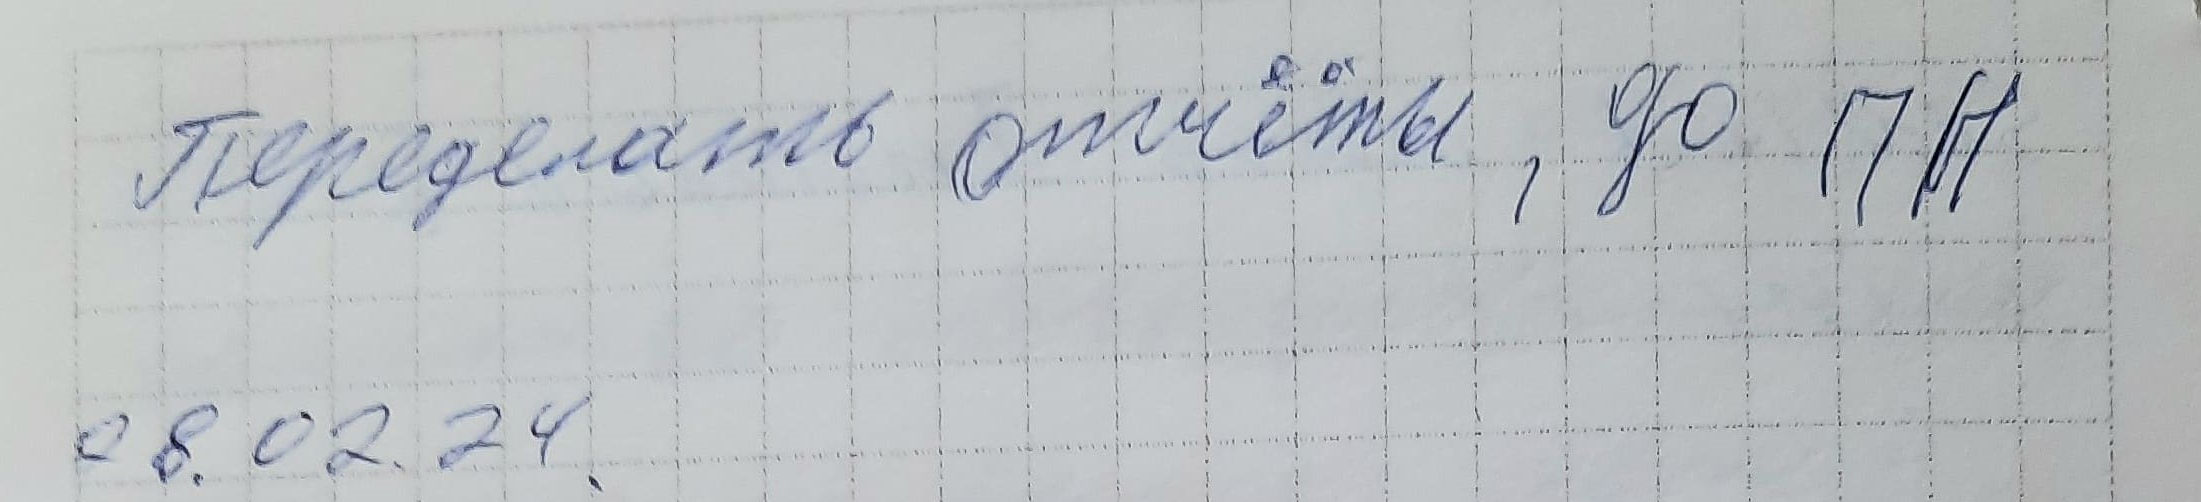 Переделать отчёты, до ПН
08.02.24.